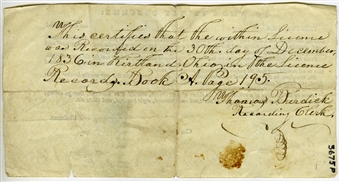 This certifies that the within Licence
was Recorded on the 30th day of December
1836 in Kirtland Ohio in the Licence
Records Book A. Page 195.
Thomas Burdick
Recording Clerk
3675P